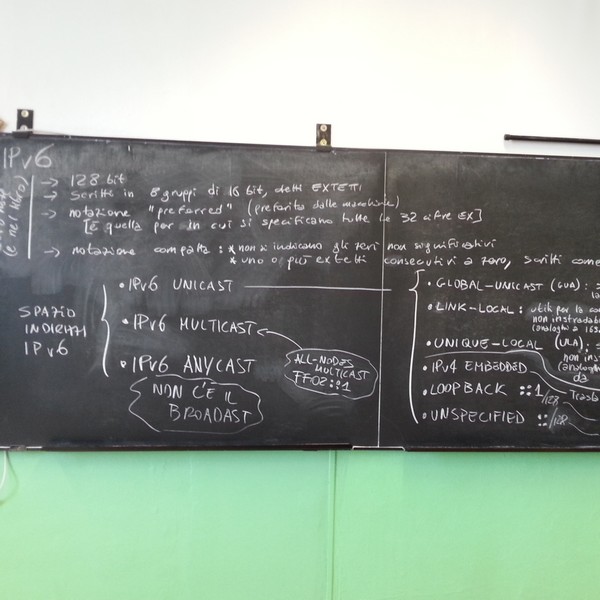 IPv6
→ 128 bit
→ scritti in 8 gruppi di 16 bit, detti EXTETTI
→ notazione "preferred" (preferita dalle macchine)
[è quella per in cui si specificano tutte le 32 cifre EX]
→ notazione compatta: * non si indicano gli zeri non significativi
* uno o più extetti consecutivi a zero, scritti come
SPAZIO
INDIRIZZI
IPv6
• IPv6 UNICAST
• IPv6 MULTICAST
ALL-NODES
MULTICAST
FF02::1
• IPv6 ANYCAST
NON C'È IL
BROADAST
• GLOBAL-UNICAST (GUA):
• LINK-LOCAL: utili per la
non instradabi
(analoghi a 169
• UNIQUE-LOCAL (ULA):
non ins
(analogh
• IPv4 EMBEDDED
• LOOPBACK ::1/128
• UNSPECIFIED ::/128